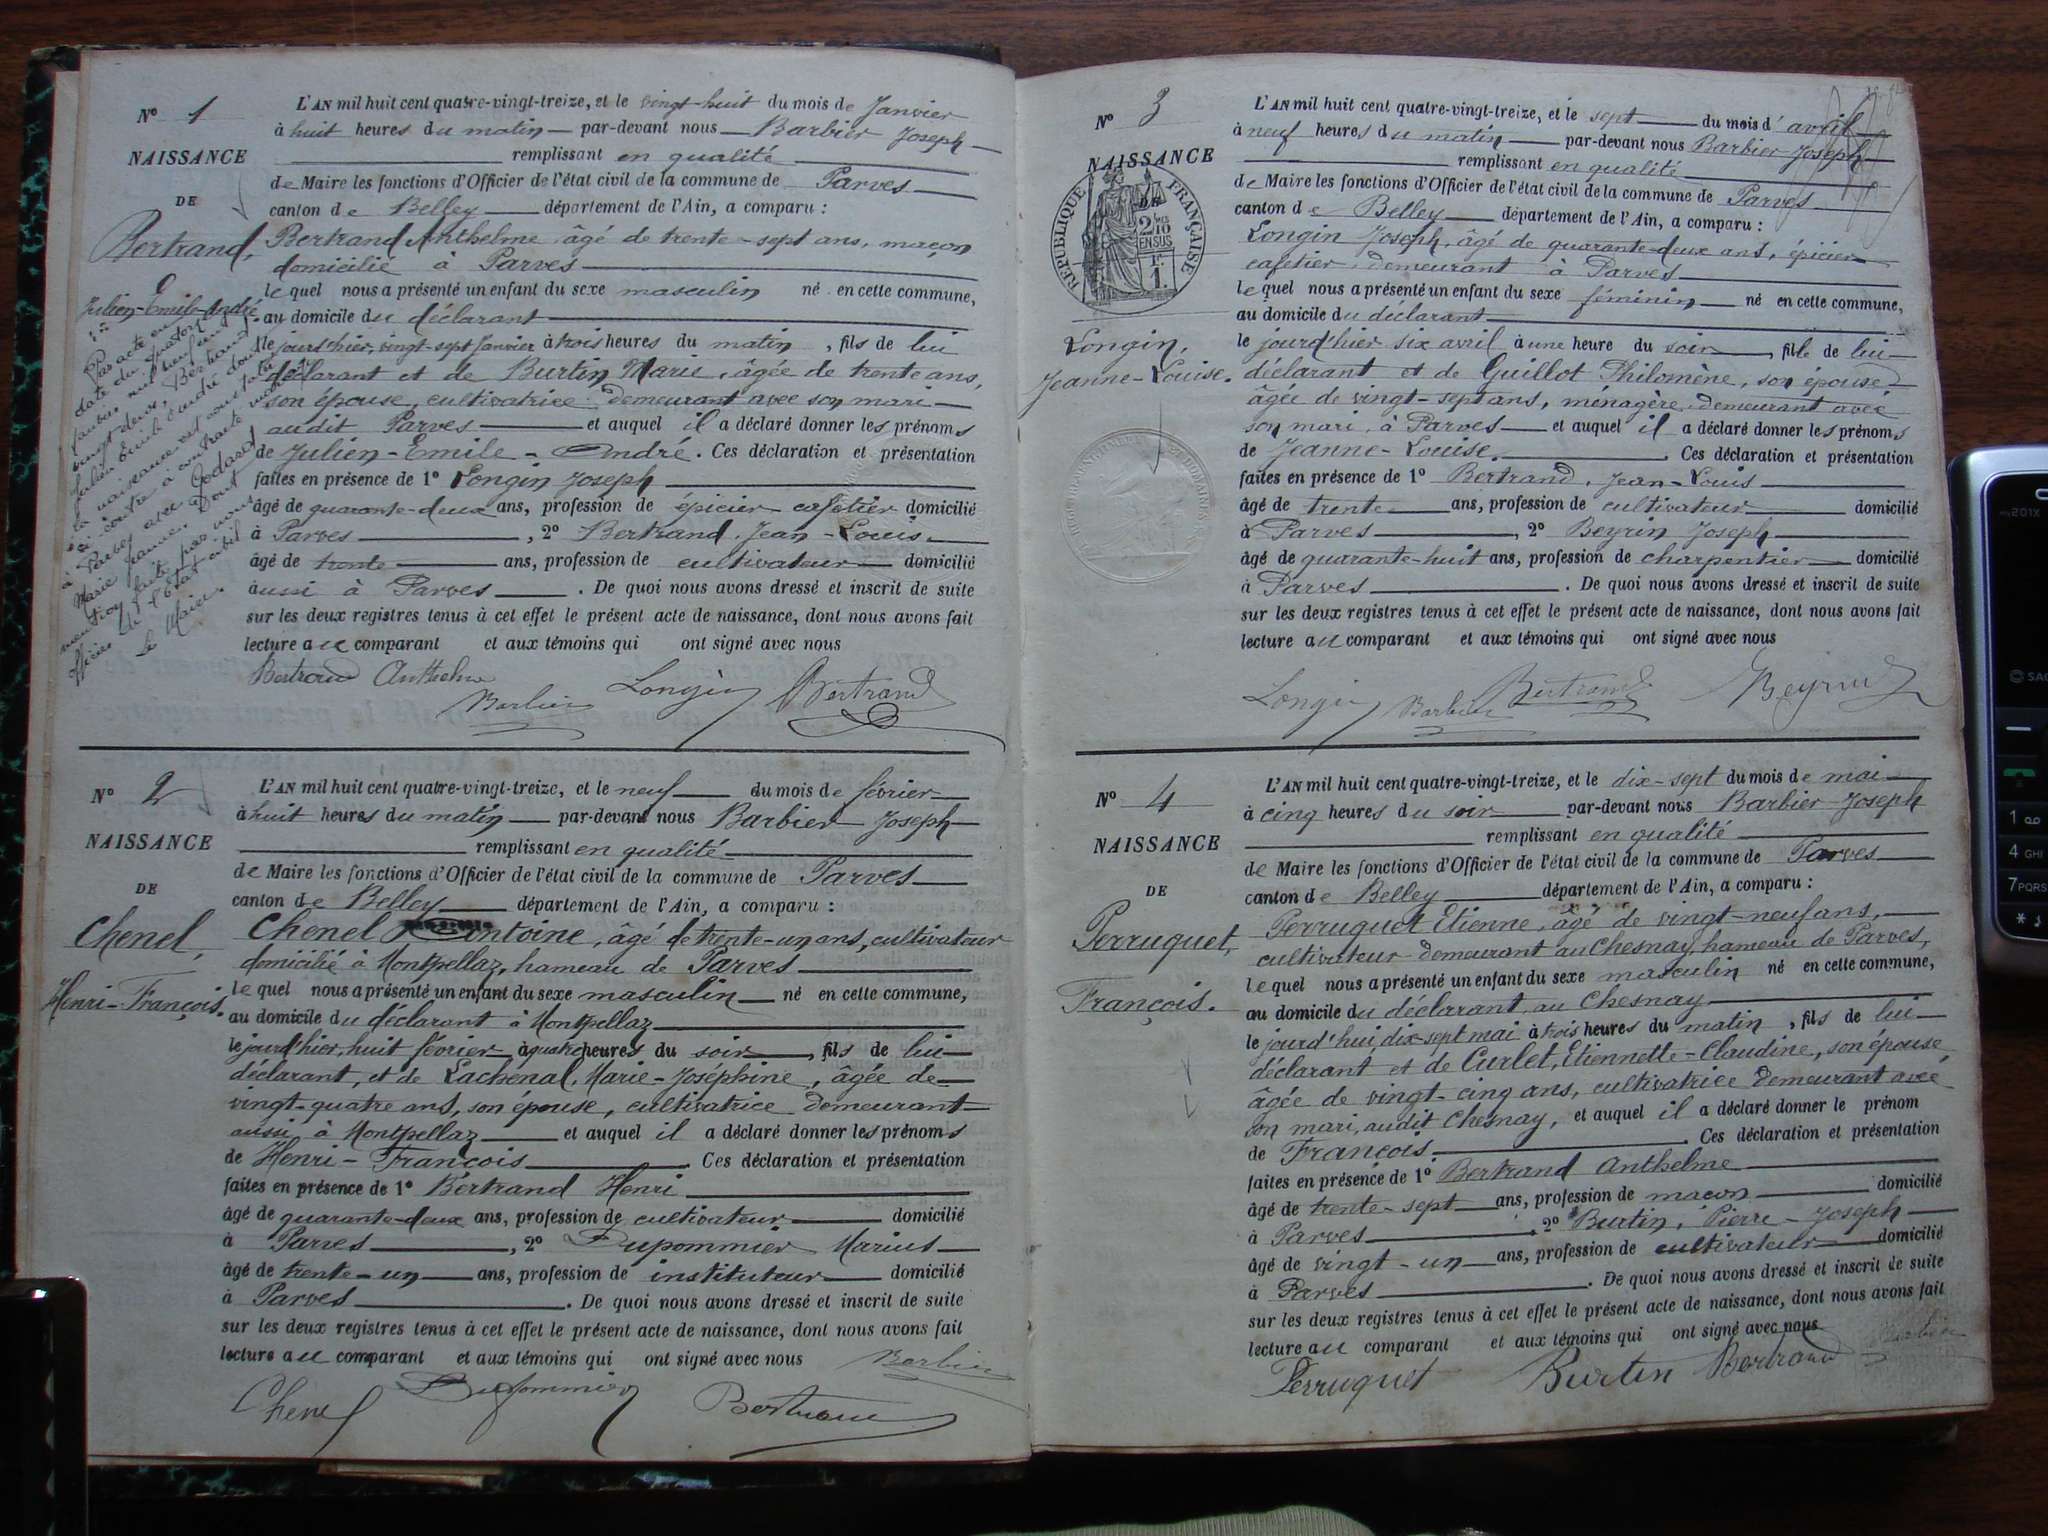 Nº 1
NAISSANCE
DE
Bertrand,
Julien-Emile-André.
Par acte en
date du quatorze
janvier mil neuf cent
vingt deux, Bertrand
Julien Emile André dont
la naissance est constatée
ci-contre a contracté mariage
à Parves avec Godard
Marie Jeanne. Dont
mention faite par nous
officier de l'Etat civil
Le Maire.
L'AN mil huit cent quatre-vingt-treize, et le vingt-huit du mois de Janvier
à huit heures du matin par-devant nous Barbier Joseph
remplissant en qualité
de Maire les fonctions d'Officier de l'état civil de la commune de Parves
canton de Belley département de l'Ain, a comparu :
Bertrand Anthelme, âgé de trente-sept ans, maçon
domicilié à Parves
le quel nous a présenté un enfant du sexe masculin né en cette commune,
au domicile du déclarant
le jourd'hier, vingt-sept Janvier à trois heures du matin, fils de lui
déclarant et de Burtin Marie, âgée de trente ans,
son épouse, cultivatrice demeurant avec son mari
audit Parves et auquel il a déclaré donner les prénoms
de Julien-Emile-André. Ces déclaration et présentation
faites en présence de 1º Longin Joseph
âgé de quarante-deux ans, profession de épicier cafetier domicilié
à Parves, 2º Bertrand, Jean-Louis
âgé de trente ans, profession de cultivateur domicilié
aussi à Parves. De quoi nous avons dressé et inscrit de suite
sur les deux registres tenus à cet effet le présent acte de naissance, dont nous avons fait
lecture au comparant et aux témoins qui ont signé avec nous
Bertrand Anthelme
Barbier Longin Bertrand
Nº 2
NAISSANCE
DE
Chenel,
Henri-François.
L'AN mil huit cent quatre-vingt-treize, et le neuf du mois de février
à huit heures du matin par-devant nous Barbier Joseph
remplissant en qualité
de Maire les fonctions d'Officier de l'état civil de la commune de Parves
canton de Belley département de l'Ain, a comparu :
Chenel Antoine, âgé de trente-un ans, cultivateur
domicilié à Montpellaz, hameau de Parves
le quel nous a présenté un enfant du sexe masculin né en cette commune,
au domicile du déclarant à Montpellaz
le jourd'hier, huit février à quatre heures du soir, fils de lui
déclarant, et de Lachenal, Marie-Joséphine, âgée de
vingt-quatre ans, son épouse, cultivatrice demeurant
aussi à Montpellaz et auquel il a déclaré donner les prénoms
de Henri-François Ces déclaration et présentation
faites en présence de 1º Bertrand Henri
âgé de quarante-deux ans, profession de cultivateur domicilié
à Parves, 2º Dupommier Marius
âgé de trente-un ans, profession de instituteur domicilié
à Parves. De quoi nous avons dressé et inscrit de suite
sur les deux registres tenus à cet effet le présent acte de naissance, dont nous avons fait
lecture au comparant et aux témoins qui ont signé avec nous Barbier
Chenel Dupommier Bertrand
Nº 3
NAISSANCE
DE
RÉPUBLIQUE FRANÇAISE
2/10 EN SUS
1.
Longin,
Jeanne-Louise.
L'AN mil huit cent quatre-vingt-treize, et le sept du mois d'avril
à neuf heures du matin par-devant nous Barbier Joseph
remplissant en qualité
de Maire les fonctions d'Officier de l'état civil de la commune de Parves
canton de Belley département de l'Ain, a comparu :
Longin Joseph, âgé de quarante-deux ans, épicier
cafetier, demeurant à Parves
le quel nous a présenté un enfant du sexe féminin né en cette commune,
au domicile du déclarant
le jourd'hier six avril à une heure du soir, fille de lui
déclarant et de Guillot Philomène, son épouse
âgée de vingt-sept ans, ménagère, demeurant avec
son mari, à Parves et auquel il a déclaré donner les prénoms
de Jeanne-Louise. Ces déclaration et présentation
faites en présence de 1º Bertrand, Jean-Louis
âgé de trente ans, profession de cultivateur domicilié
à Parves, 2º Beyrin Joseph
âgé de quarante-huit ans, profession de charpentier domicilié
à Parves. De quoi nous avons dressé et inscrit de suite
sur les deux registres tenus à cet effet le présent acte de naissance, dont nous avons fait
lecture au comparant et aux témoins qui ont signé avec nous
Longin Barbier Bertrand
Nº 4
NAISSANCE
DE
Perruquet,
François.
L'AN mil huit cent quatre-vingt-treize, et le dix-sept du mois de mai
à cinq heures du soir par-devant nous Barbier Joseph
remplissant en qualité
de Maire les fonctions d'Officier de l'état civil de la commune de Parves
canton de Belley département de l'Ain, a comparu :
Perruquet Etienne, âgé de vingt-neuf ans,
cultivateur demeurant au Chesnay, hameau de Parves,
le quel nous a présenté un enfant du sexe masculin né en cette commune,
au domicile du déclarant, au Chesnay
le jourd'hui, dix-sept mai à trois heures du matin, fils de lui
déclarant et de Curlet, Etiennette-Claudine, son épouse
âgée de vingt-cinq ans, cultivatrice demeurant avec
son mari, audit Chesnay, et auquel il a déclaré donner le prénom
de François. Ces déclaration et présentation
faites en présence de 1º Bertrand Anthelme
âgé de trente-sept ans, profession de maçon domicilié
à Parves, 2º Burtin, Pierre-Joseph
âgé de vingt-un ans, profession de cultivateur domicilié
à Parves. De quoi nous avons dressé et inscrit de suite
sur les deux registres tenus à cet effet le présent acte de naissance, dont nous avons fait
lecture au comparant et aux témoins qui ont signé avec nous Barbier
Perruquet Burtin Bertrand
my201X
SAG
1
4 GHI
7PQRS
*